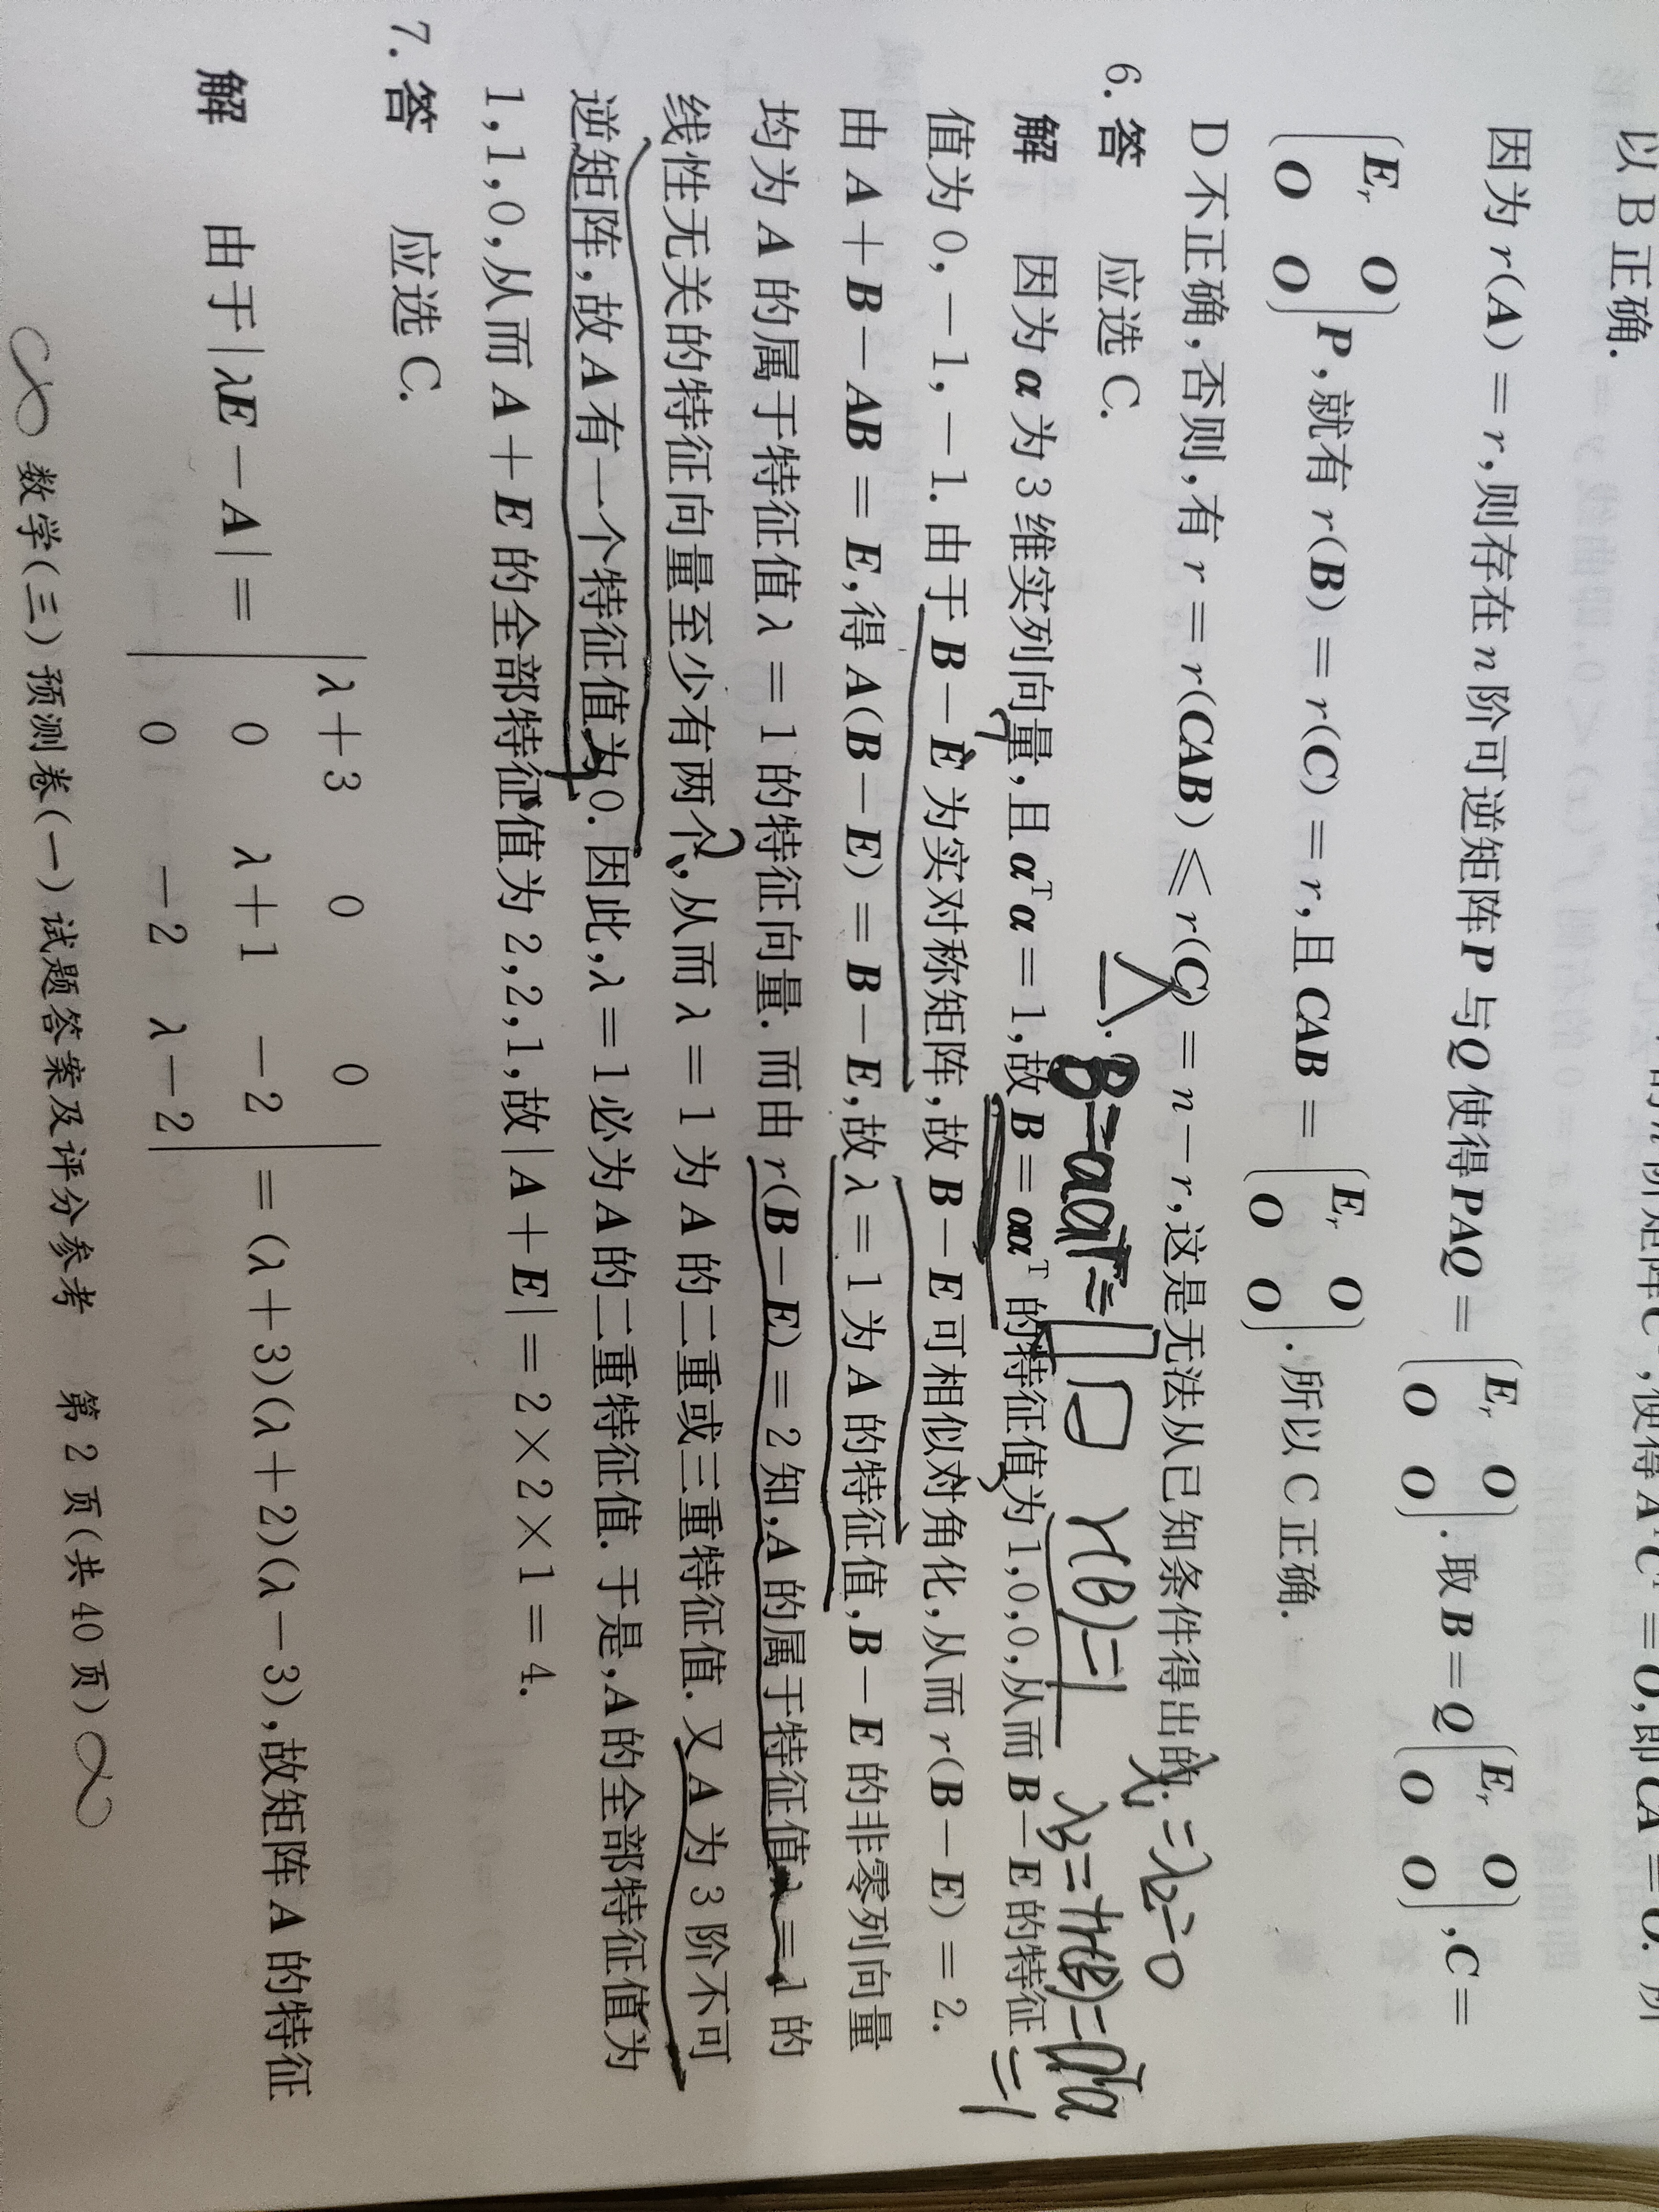 以 B 正确.
因为 r(A) = r,则存在 n 阶可逆矩阵 P 与 Q 使得 PAQ = (E_r O; O O). 取 B = Q(E_r O; O O), C =
(E_r O; O O)P,就有 r(B) = r(C) = r,且 CAB = (E_r O; O O). 所以 C 正确.
D 不正确,否则,有 r = r(CAB) ≤ r(C) = n − r,这是无法从已知条件得出的.
λ₁=λ₂=0
6. 答 应选 C.
B=ααᵀ= r(B)=1 λ₃=tr(B)=αᵀα
=1
解 因为 α 为 3 维实列向量,且 αᵀα = 1,故 B = ααᵀ 的特征值为 1,0,0,从而 B − E 的特征
值为 0,−1,−1. 由于 B − E 为实对称矩阵,故 B − E 可相似对角化,从而 r(B − E) = 2.
由 A + B − AB = E,得 A(B − E) = B − E,故 λ = 1 为 A 的特征值,B − E 的非零列向量
均为 A 的属于特征值 λ = 1 的特征向量. 而由 r(B − E) = 2 知,A 的属于特征值 λ = 1 的
线性无关的特征向量至少有两个,从而 λ = 1 为 A 的二重或三重特征值. 又 A 为 3 阶不可
逆矩阵,故 A 有一个特征值为 0. 因此,λ = 1 必为 A 的二重特征值. 于是,A 的全部特征值为
1,1,0,从而 A + E 的全部特征值为 2,2,1,故 |A + E| = 2 × 2 × 1 = 4.
7. 答 应选 C.
解 由于 |λE − A| = |λ+3 0 0; 0 λ+1 −2; 0 −2 λ−2| = (λ + 3)(λ + 2)(λ − 3),故矩阵 A 的特征
数学(三)预测卷(一)试题答案及评分参考 第 2 页(共 40 页)